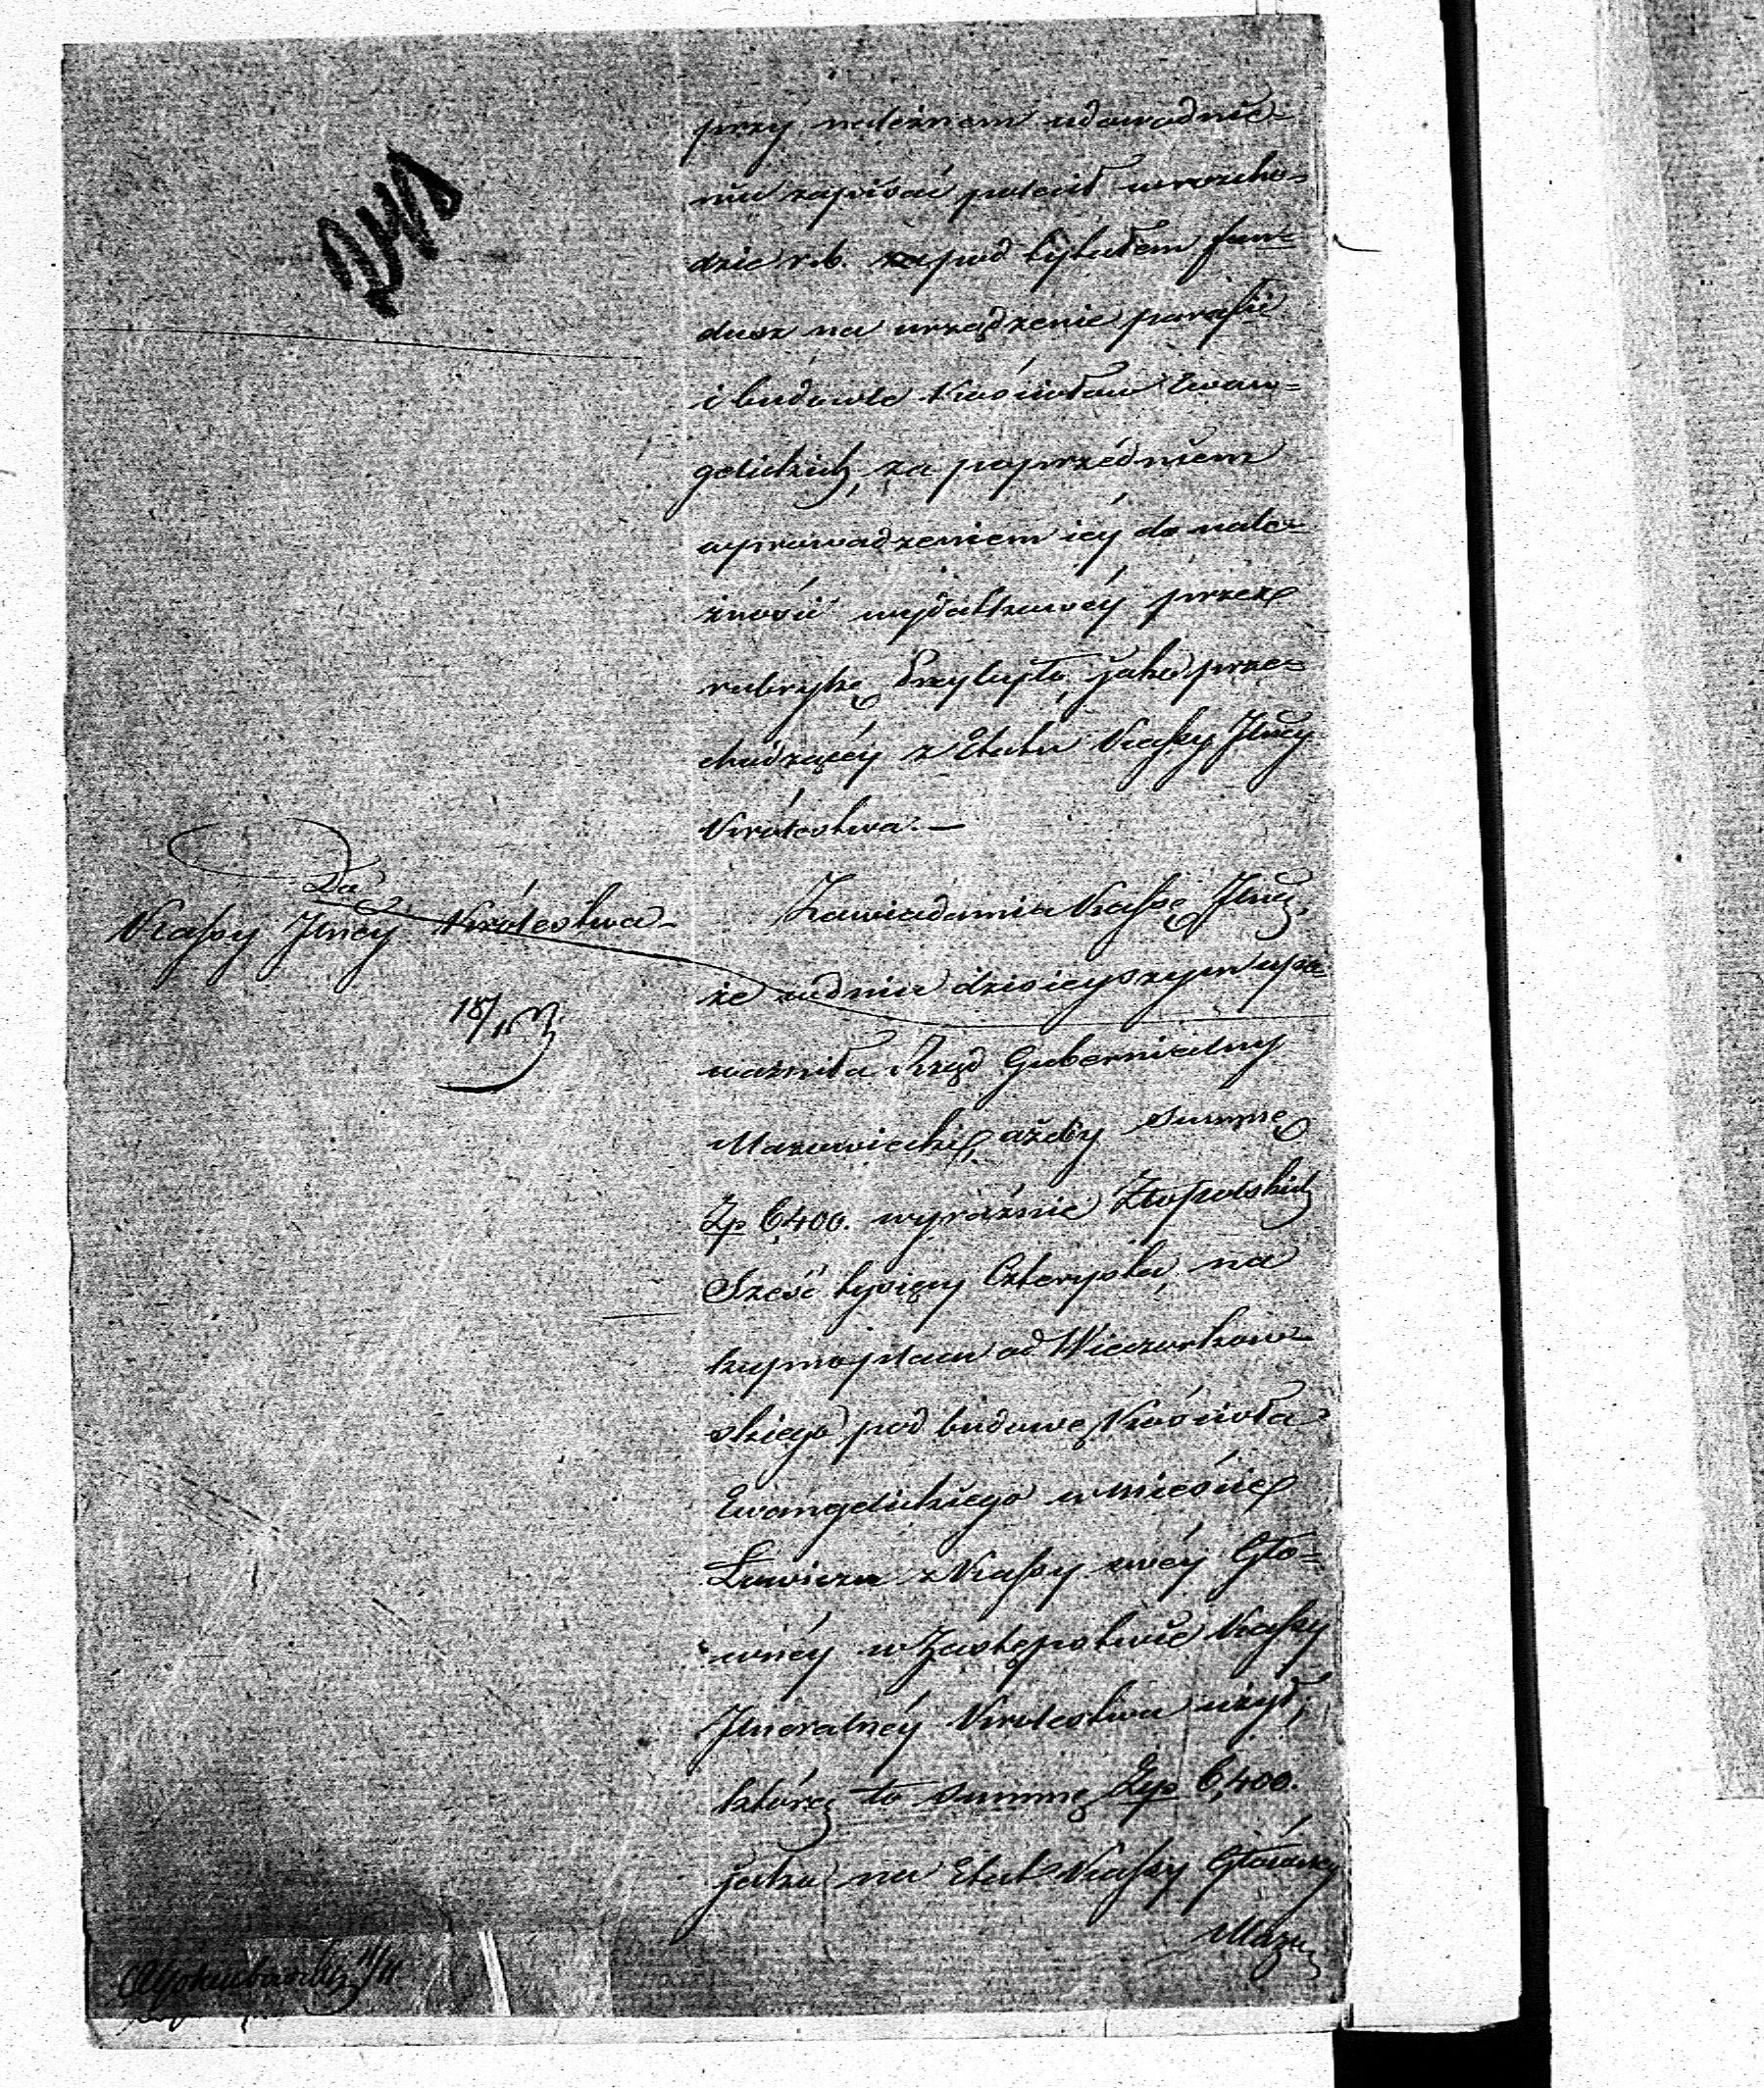 przy należnem udowodnie=
niu zapisać polecił w rozcho=
dzie r.b. pod tytułem fun=
dusz na urządzenie parafii
i budowle Kościołów Ewan=
gelickich, za poprzedniem
wprowadzeniem iéy do nale=
żności wydatkowéy przez
rubrykę Przybyło, jako prze=
chodzącéy z Etatu Kassy Jlnéy
Królestwa.—
Do
Kassy Jlnéy Królestwa
18/11
Zawiadamia Kassę Jlną,
że w dniu dzisieyszym upo=
ważniła Rząd Gubernialny
Mazowiecki, ażeby summę
Zp 6,400. wyraźnie Złotopolskich
Sześć tysięcy Czterysta, na
kupno placu od Wieczorkow=
skiego pod budowę Kościoła
Ewangelickiego w mieście
Łowiczu z Kassy swéy Głó=
wnéy w Zastępstwie Kassy
Jlneralnéy Królestwa użył,
którą to summę Zlp 6,400.
jako na Etat Kassy Główney
Mazo
11/11